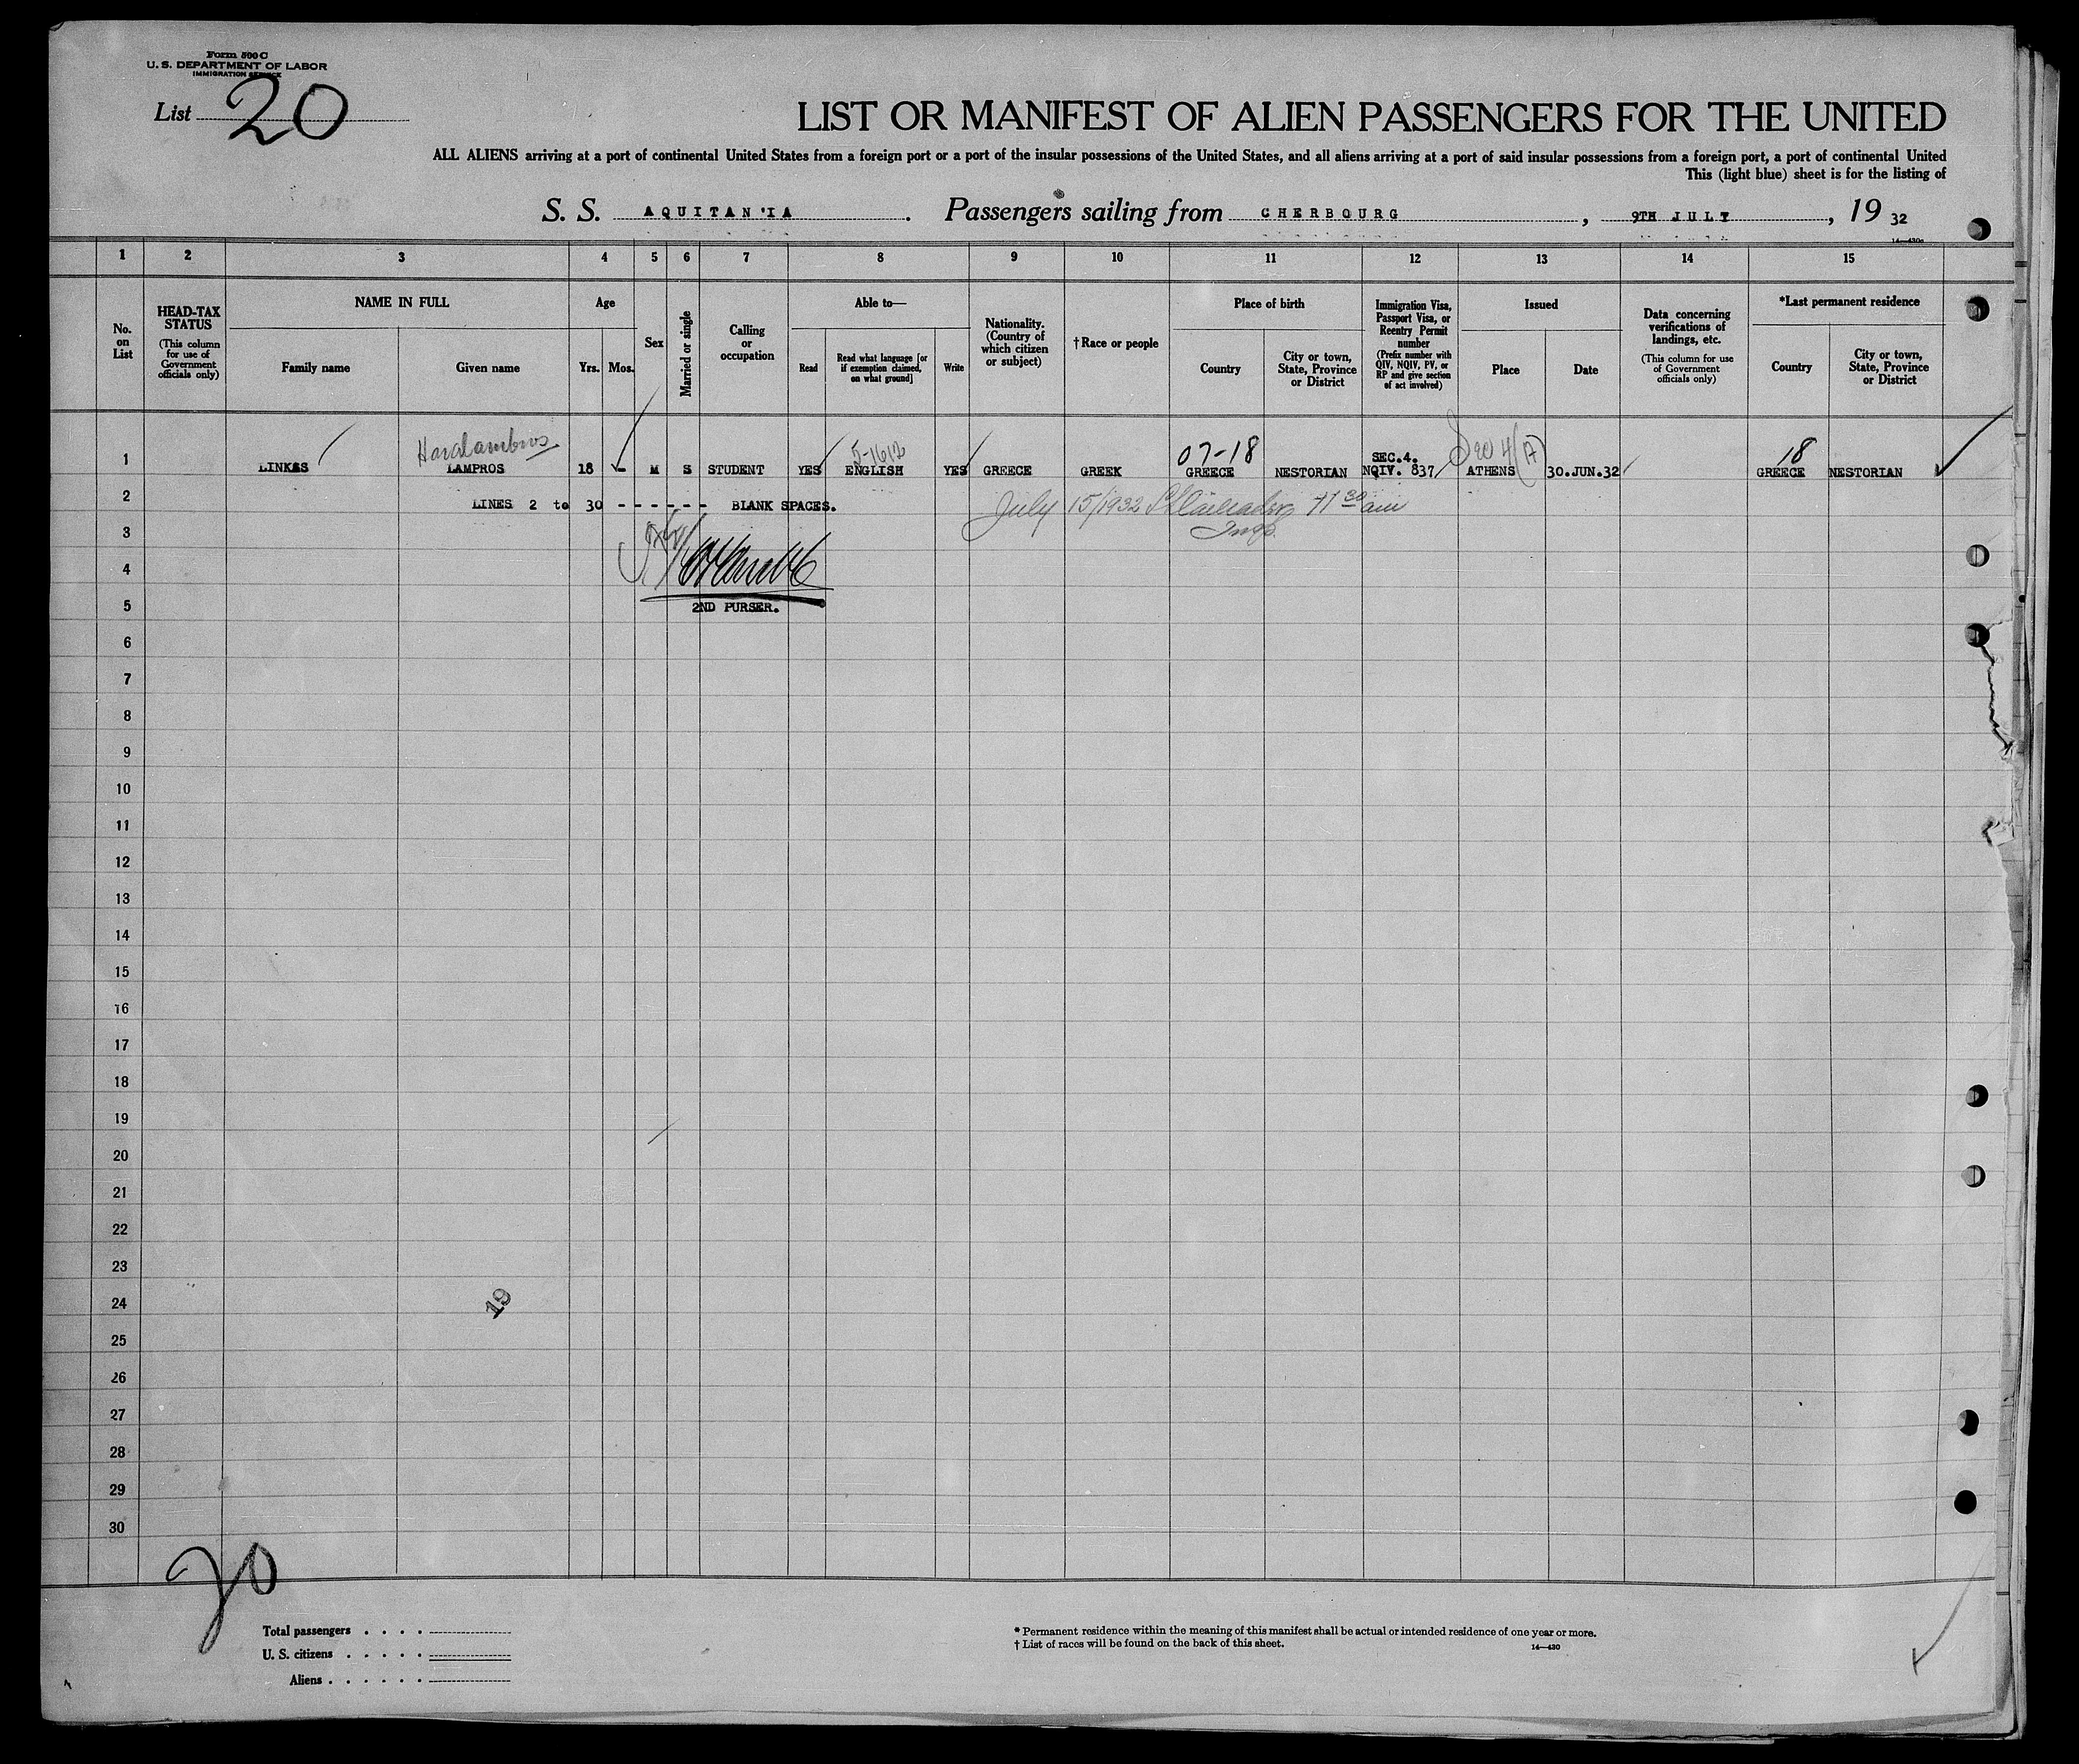 Form 500 C
U. S. DEPARTMENT OF LABOR
IMMIGRATION SERVICE
List 20
LIST OR MANIFEST OF ALIEN PASSENGERS FOR THE UNITED
ALL ALIENS arriving at a port of continental United States from a foreign port or a port of the insular possessions of the United States, and all aliens arriving at a port of said insular possessions from a foreign port, a port of continental United
This (light blue) sheet is for the listing of
S. S. AQUITAN'IA. Passengers sailing from CHERBOURG, 9TH JULY, 19 32
1 2 3 4 5 6 7 8 9 10 11 12 13 14 15
No. on List
HEAD-TAX STATUS
(This column for use of Government officials only)
NAME IN FULL
Family name
Given name
Age
Yrs.
Mos.
Sex
Married or single
Calling or occupation
Able to—
Read
Read what language [or if exemption claimed, on what ground]
Write
Nationality. (Country of which citizen or subject)
†Race or people
Place of birth
Country
City or town, State, Province or District
Immigration Visa, Passport Visa, or Reentry Permit number
(Prefix number with QIV, NQIV, PV, or RP and give section of act involved)
Issued
Place
Date
Data concerning verifications of landings, etc.
(This column for use of Government officials only)
*Last permanent residence
Country
City or town, State, Province or District
Haralambros 07-18 SEC.4. 18
1 LINKAS LAMPROS 18 - M S STUDENT YES ENGLISH YES GREECE GREEK GREECE NESTORIAN NQIV. 837 ATHENS 30.JUN.32 GREECE NESTORIAN
2 LINES 2 to 30 - - - - - - BLANK SPACES. July 15/1932 11 30 am
3 Insp.
4
5 2ND PURSER.
6
7
8
9
10
11
12
13
14
15
16
17
18
19
20
21
22
23
24 19
25
26
27
28
29
30
20
Total passengers . . . .
U. S. citizens . . . . .
Aliens . . . . . .
* Permanent residence within the meaning of this manifest shall be actual or intended residence of one year or more.
† List of races will be found on the back of this sheet. 14—430